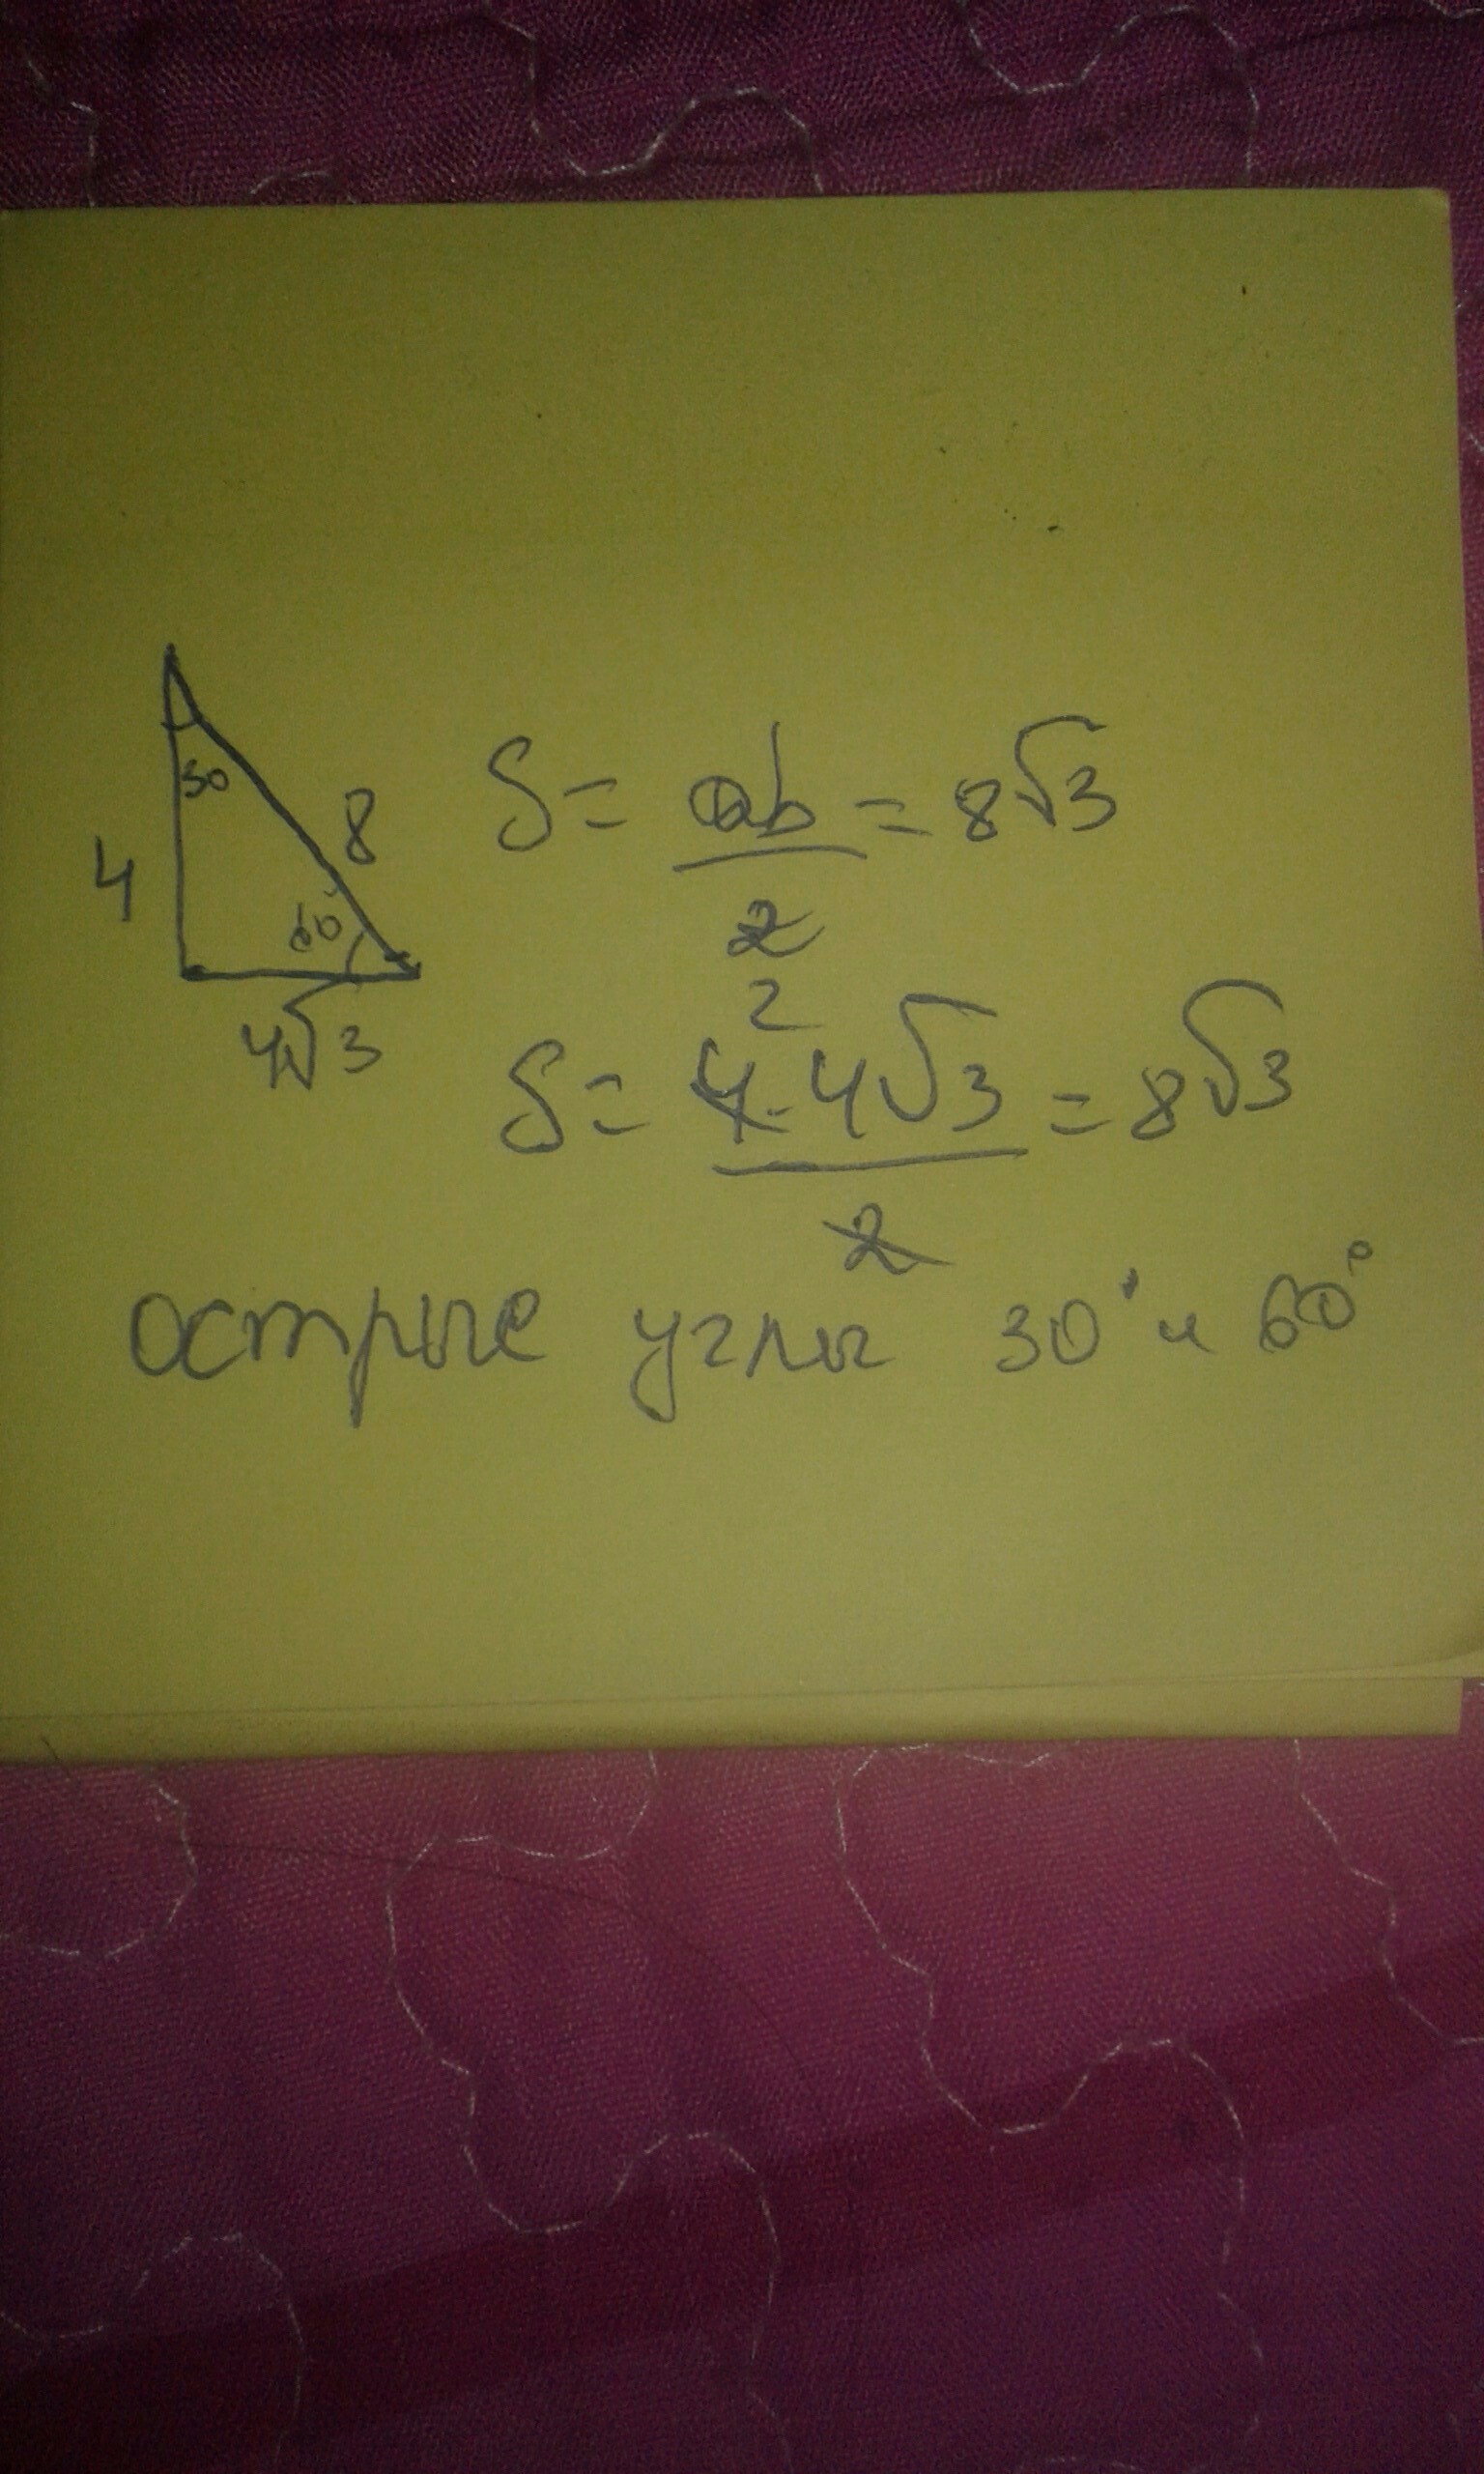 30
8
4
60
4√3
S = ab/2 = 8√3
2
S = 4·4√3/2 = 8√3
острые углы 30° и 60°